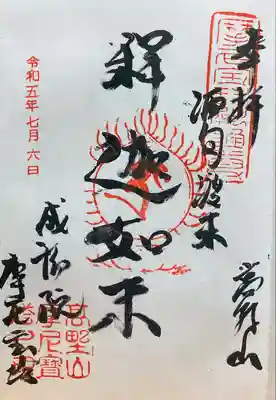 奉拝
高野山
釋迦如来
令和五年七月六日
成福院
摩尼宝塔
高野山
摩尼寶
塔之印